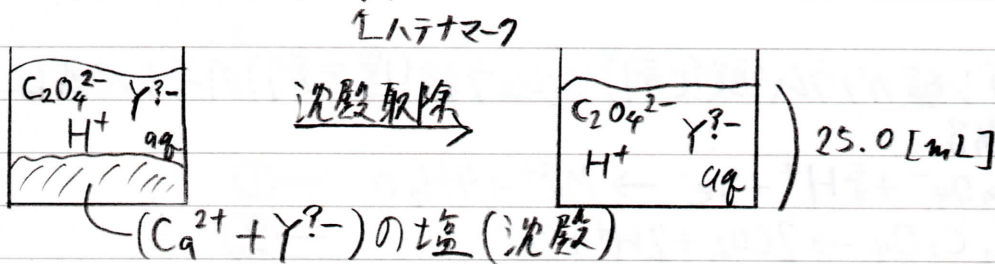 ↑ハテナマーク
C₂O₄²⁻ Y^?- H⁺ aq
沈殿取除
C₂O₄²⁻ Y^?- H⁺ aq
25.0 [mL]
(Ca²⁺ + Y^?-)の塩(沈殿)